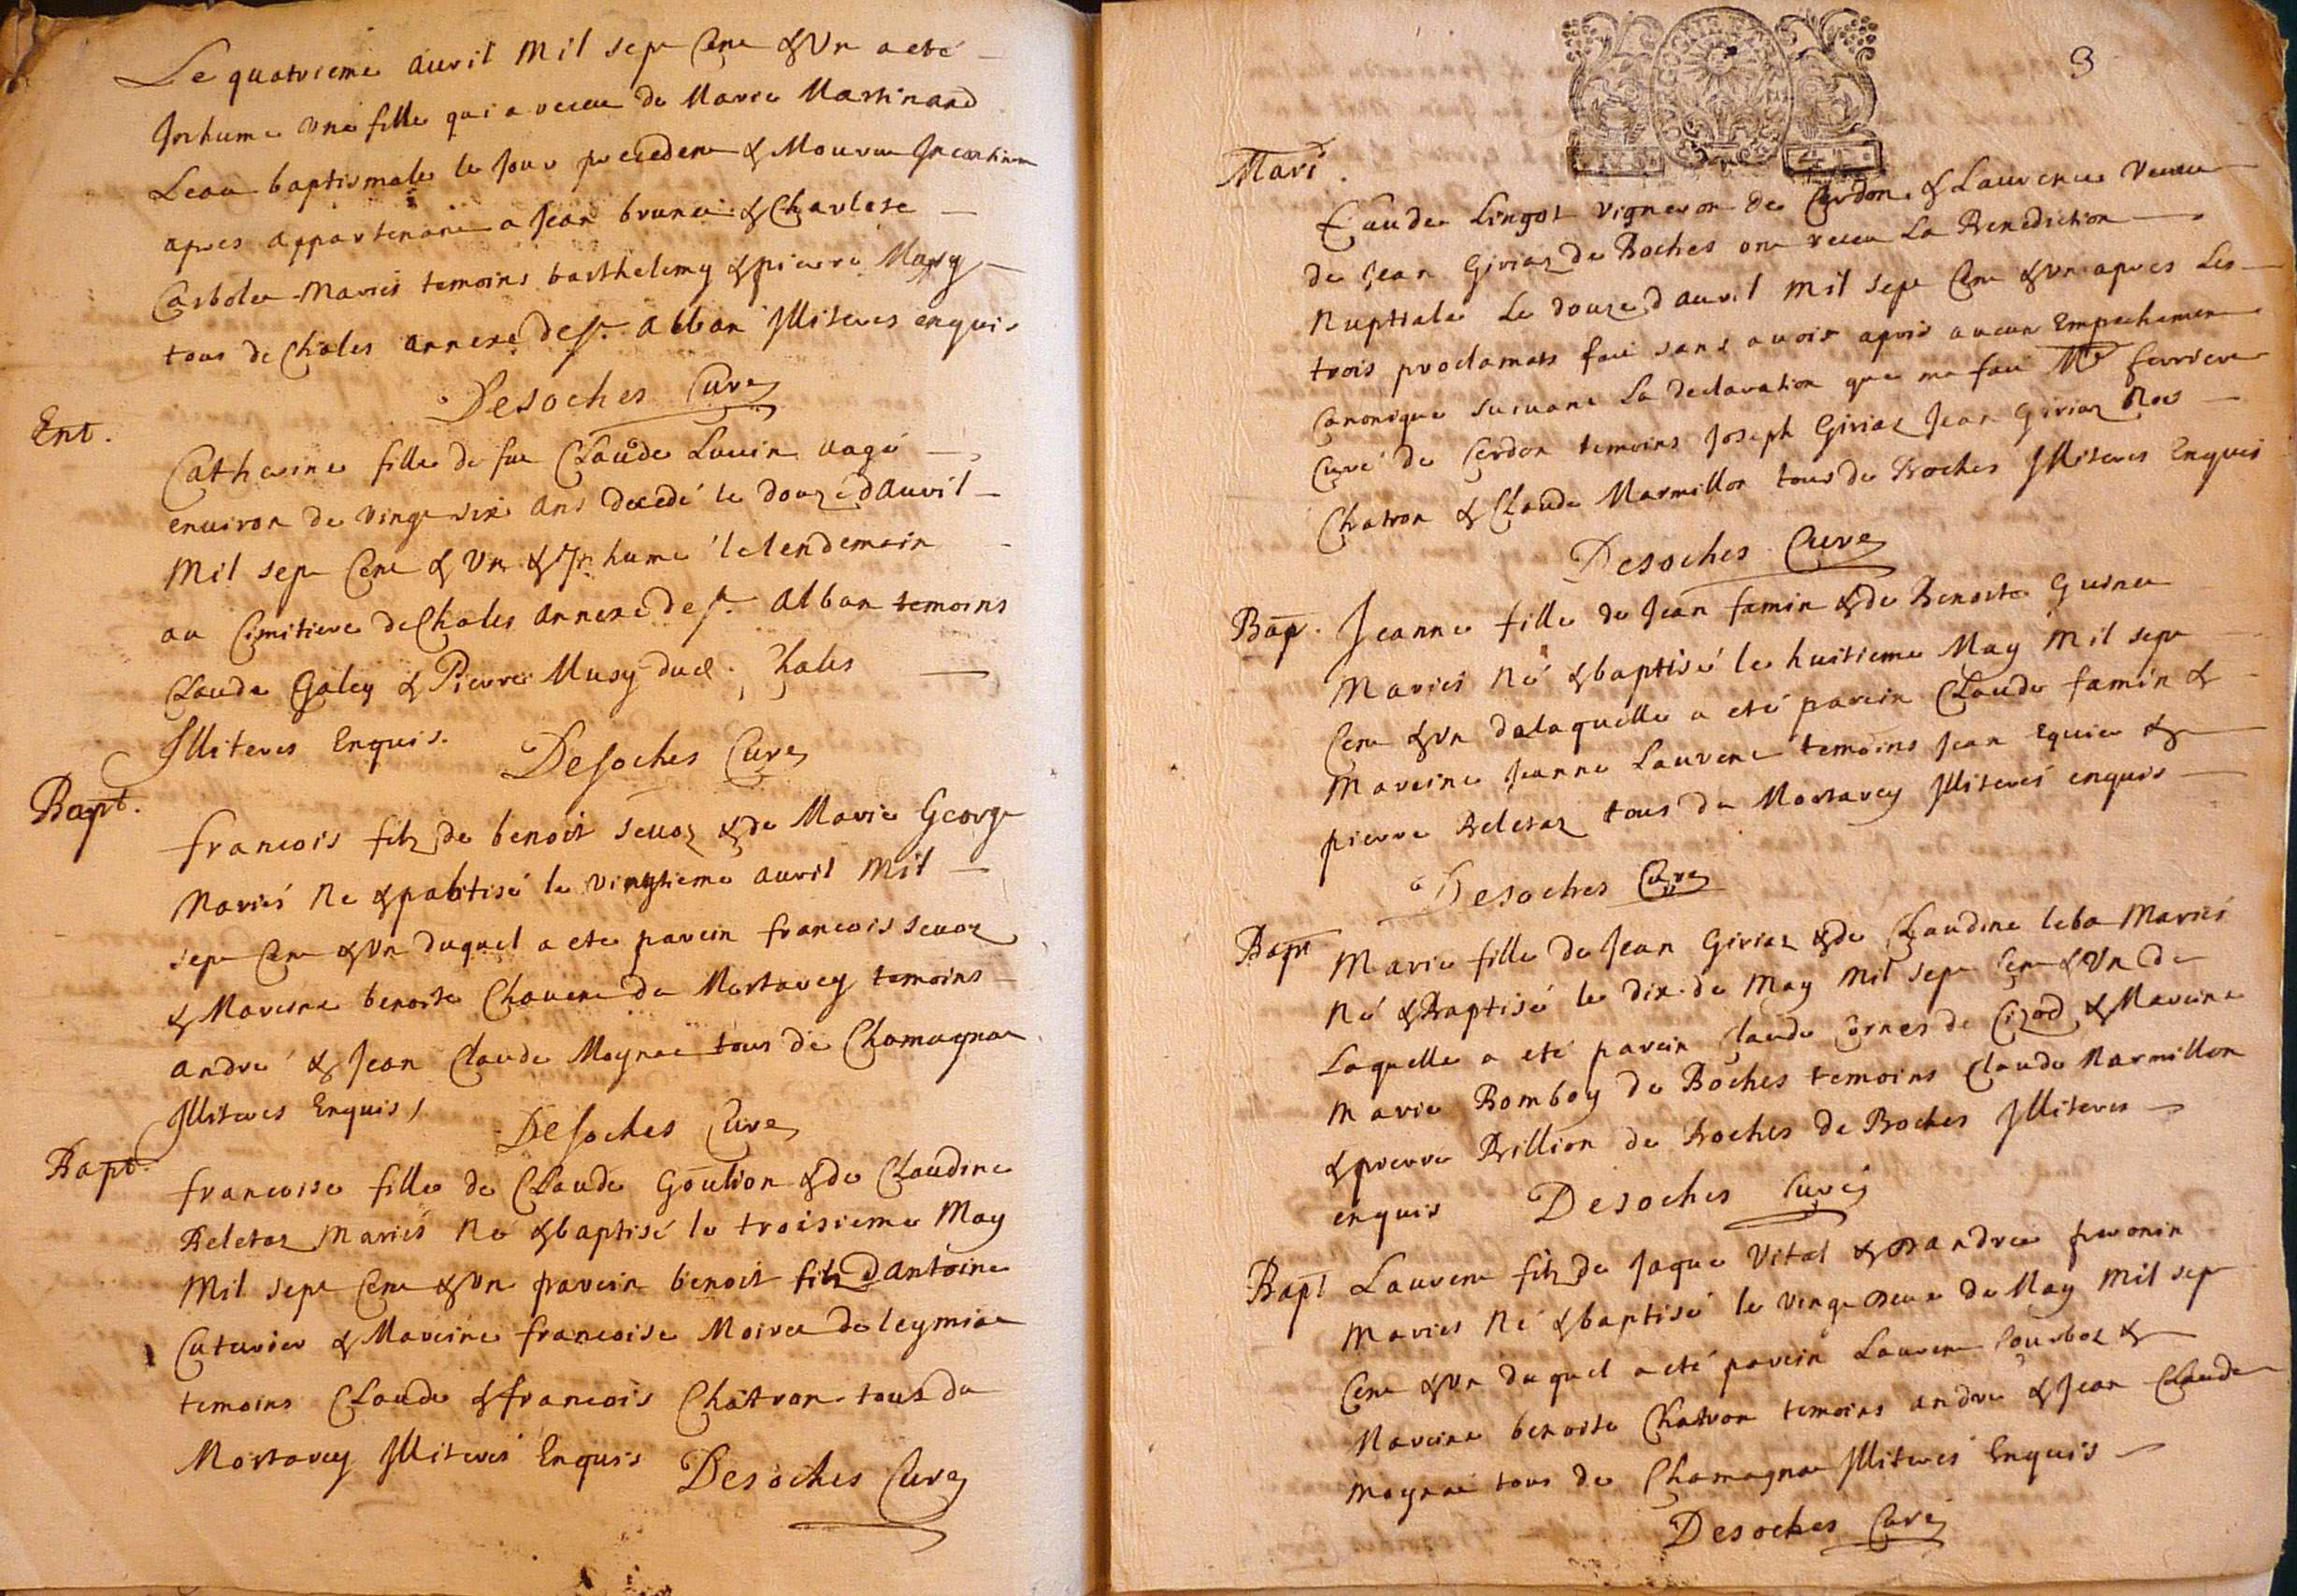 Le quatrieme auvril Mil sept Cent & Un a eté
Inhume une fille qui a receu de Marie Martinand
Leau baptismale le Jour precedent & Mourut Incontinent
apres appartenant a Jean brunet & Charlote
Mariés temoins barthelemy & pierre Musy
tous de Chales annexe de st. Alban Illiteres enquis
Desoches Curé
Ent.
Catherine fille de feu Claude Louin aagé
environ de vingt six ans decedé le douze d'Auvril
Mil sept Cent & Un & Inhumé le lendemain
au Cimitiere de Chales annexe de st. Alban temoins
Claude Galey & Pierre Musy dud. Chales
Illiteres Enquis.
Desoches Curé
Bapt.
francois filz de benoit sevoz & de Marie George
Mariés Ne & pabtisé le vingtieme auvril Mil
sept Cent & Un duquel a ete parein francois sevoz
& Mareine benoite Chavent de Mortarey temoins
andre & Jean Claude Moynat tous de Chamagnat
Illiteres Enquis
Desoches Curé
Bapt.
francoise fille de Claude Goulion & de Claudine
Beletaz Mariés Né & baptisé le troisieme May
Mil sept Cent & Un parein benoit filz d'Antoine
Cuturier & Mareine francoise Moiret de leymiat
temoins Claude & francois Chatron tous de
Mortarey Illiterés Enquis Desoches Curé
3
Mari.
Claude Lingot vigneron de Cerdon & Laurence veuve
de Jean Giriaz de Boches ont receu La Benediction
Nuptiale Le douze d'auvril Mil sept Cent & Un apres Les
trois proclamats fait sans avoir apris aucun Empechement
Canonique suivant La declaration que ma fait Mre ferriere
Curé de Cerdon temoins Joseph Giriaz Jean Giriaz
Chatron & Claude Marmillon tous de Boches Illiteres Enquis
Desoches Curé
Bap. Jeanne fille de Jean famin & de Benoite Guinet
Mariés Né & baptisé le huitieme May Mil sept
Cent & Un delaquelle a eté parein Claude famin &
Mareine Jeanne Laurent temoins Jean &
pierre Beletaz tous de Mortarey Illiterés enquis
Desoches Curé
Bapt Marie fille de Jean Giriaz & de Claudine leba Mariés
Né & Baptisé le dix de May Mil sept Cent & Un de
Laquelle a eté parein Claude Cornes de Cizod & Mareine
Marie Bomboy de Boches temoins Claude Marmillon
& pierre Brillion de Boches de Boches Illiteres
enquis Desoches Curé
Bapt Laurent filz de Jaque Vital & D'andrea
Mariés Né & baptisé le vingt Deux de May Mil sept
Cent & Un duquel a eté parein Laurent &
Mareine benoite Chatron temoins andre & Jean Claude
Moynat tous de Chamagnat Illiterés Enquis
Desoches Curé